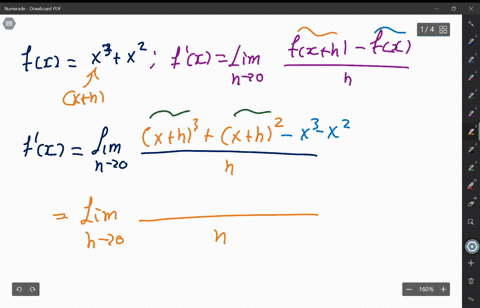 Numerade - Drawboard PDF
1 / 4
f(x) = x³ + x² ; f'(x) = Lim h→0 f(x+h) - f(x) / h
(x+h)
f'(x) = Lim h→0 (x+h)³ + (x+h)² - x³ - x² / h
= Lim h→0 / h
160%